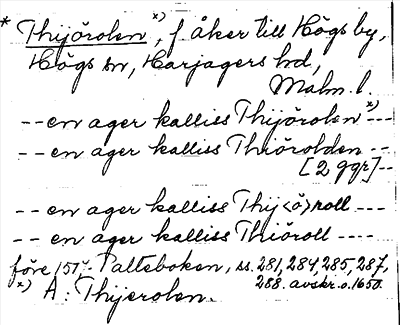 * Thijörolen x), f. åker till Högs by,
Högs sn, Harjagers hd,
Malm. l.
-- en ager kalliss Thijörolen x) ---
-- en ager kalliss Thiörolden --
[2 ggr] --
-- en ager kalliss Thij<ö>roll ----
-- en ager kalliss Thiöroll ----
före 151 Palteboken, ss. 281, 284, 285, 287,
288. avskr. o. 1650.
x) A: Thijerolen.